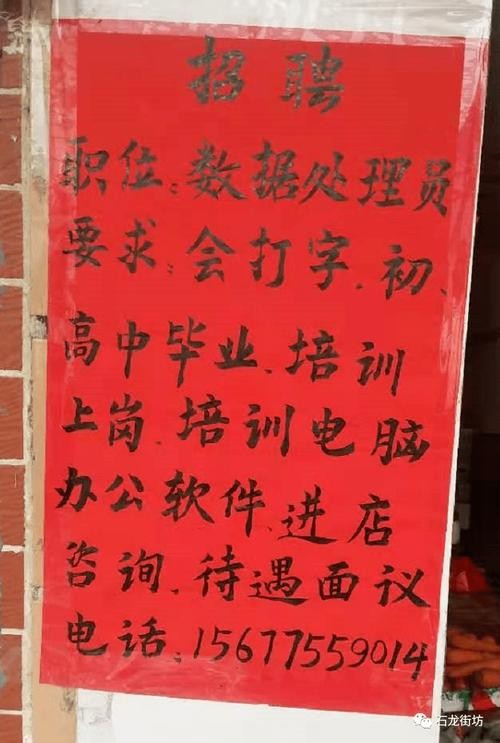 招聘
职位:数据处理员
要求:会打字、初、
高中毕业、培训
上岗、培训电脑
办公软件、进店
咨询、待遇面议
电话:15677559014
石龙街坊